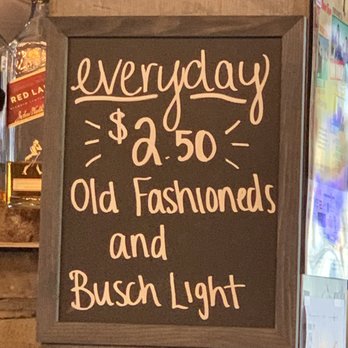 everyday
$2.50
Old Fashioneds
and
Busch Light
RED LA